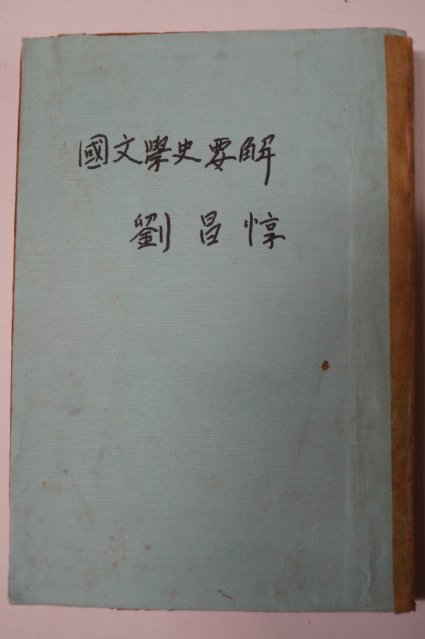 國文學史要解
劉昌惇